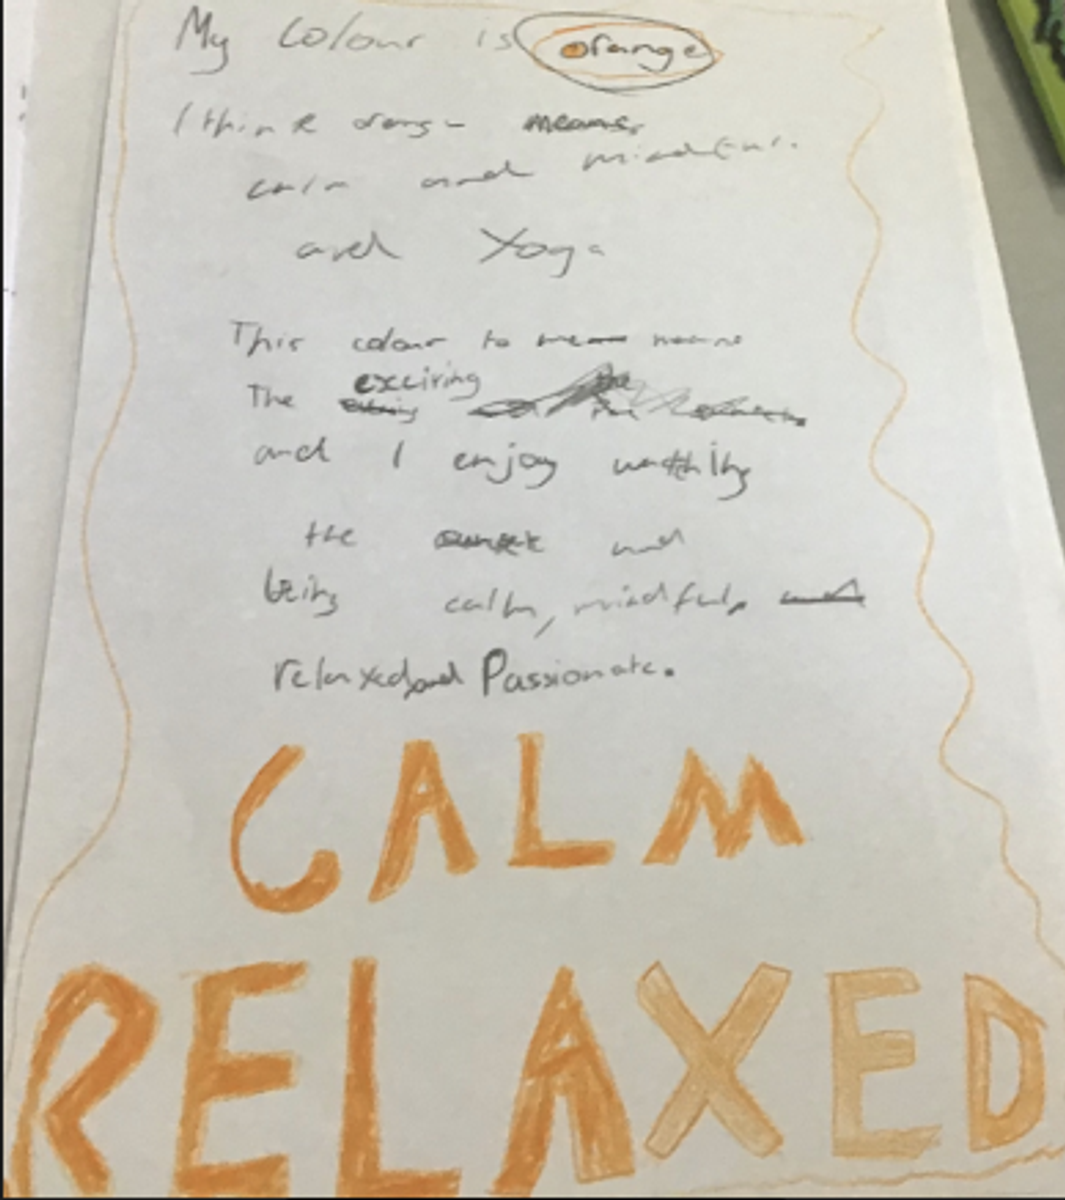 My Colour is orange
I think orange means
calm and mindful.
and Yoga
This colour to me means
The exciring
and I enjoy watching
the sunset and
being calm, mindful,
relaxed and Passionate.
CALM
RELAXED